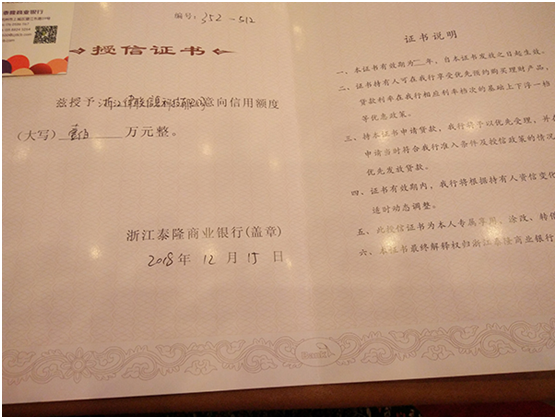 隆商业银行
编号:352-512
授信证书
兹授予 意向信用额度
(大写) 万元整。
浙江泰隆商业银行(盖章)
2018年12月15日
证书说明
一、本证书有效期为一年,自本证书发放之日起生效。
二、证书持有人可在我行享受优先预约购买理财产品,
贷款利率在我行相应利率档次的基础上下浮一档
等优惠政策。
三、持本证书申请贷款,我行将予以优先受理,并在
申请当时符合我行准入条件及授信政策的情况
优先发放贷款。
四、证书有效期内,我行将根据持有人资信变化
适时动态调整。
五、此授信证书为本人专属享用,涂改、转借
六、本证书最终解释权归浙江泰隆商业银行